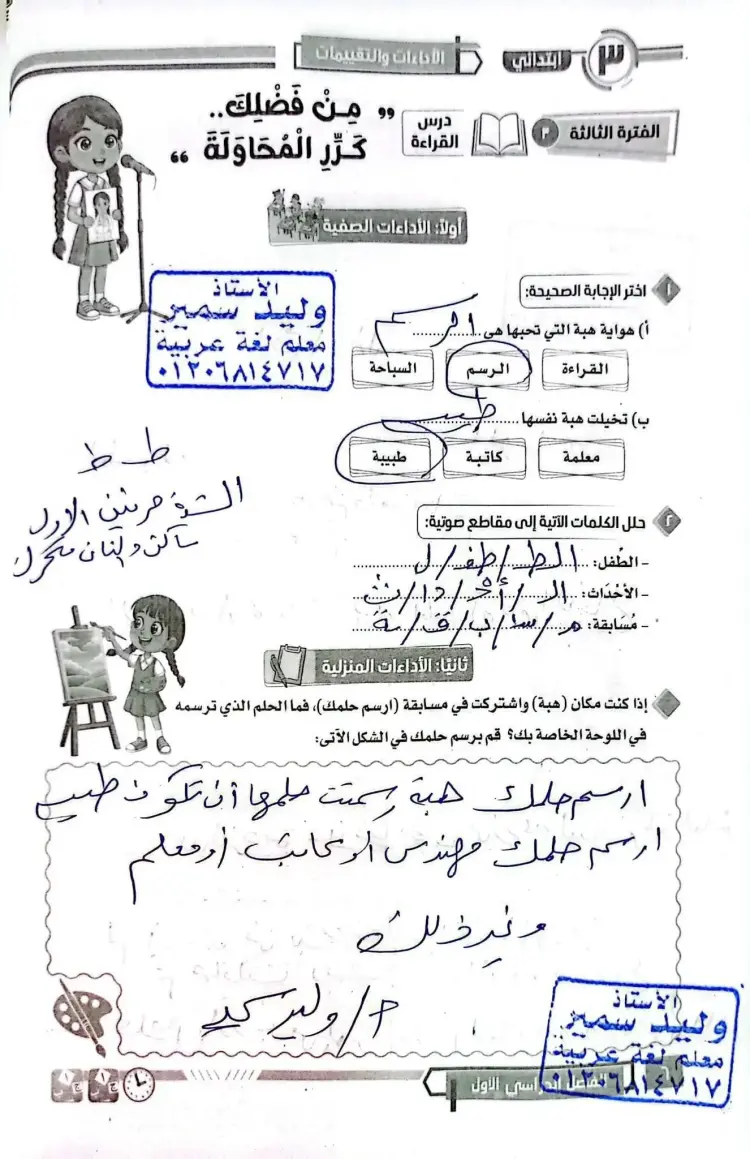 ٣ ابتدائي
الأداءات والتقييمات
الفترة الثالثة ٣
درس القراءة
" مِنْ فَضْلِكَ..
كَرِّرِ الْمُحَاوَلَةَ "
أولًا: الأداءات الصفية
١ اختر الإجابة الصحيحة:
أ) هواية هبة التي تحبها هى ........ الرسم
القراءة الرسم السباحة
ب) تخيلت هبة نفسها ........ طبيب
معلمة كاتبة طبيبة
الأستاذ
وليد سمير
معلم لغة عربية
٠١٢٠٦٨١٤٧١٧
ط ط
الشدة حرفين الأول
ساكن والثان متحرك
٢ حلل الكلمات الآتية إلى مقاطع صوتية:
- الطِّفل: الطـ / طفـ / ل
- الأحْدَاث: الـ / أحْـ / دا / ث
- مُسَابقة: مـ / سا / بـ / قـ / ـة
ثانيًا: الأداءات المنزلية
إذا كنت مكان (هبة) واشتركت في مسابقة (ارسم حلمك)، فما الحلم الذي ترسمه
في اللوحة الخاصة بك؟ قم برسم حلمك في الشكل الآتى:
ارسم حلمك هبة رسمت حلمها أن تكون طبيب
ارسم حلمك مهندس أو كاتب أو معلم
وغير ذلك
أ/ وليد سمير
الأستاذ
وليد سمير
معلم لغة عربية
٠١٢٠٦٨١٤٧١٧
الفصل الدراسي الأول